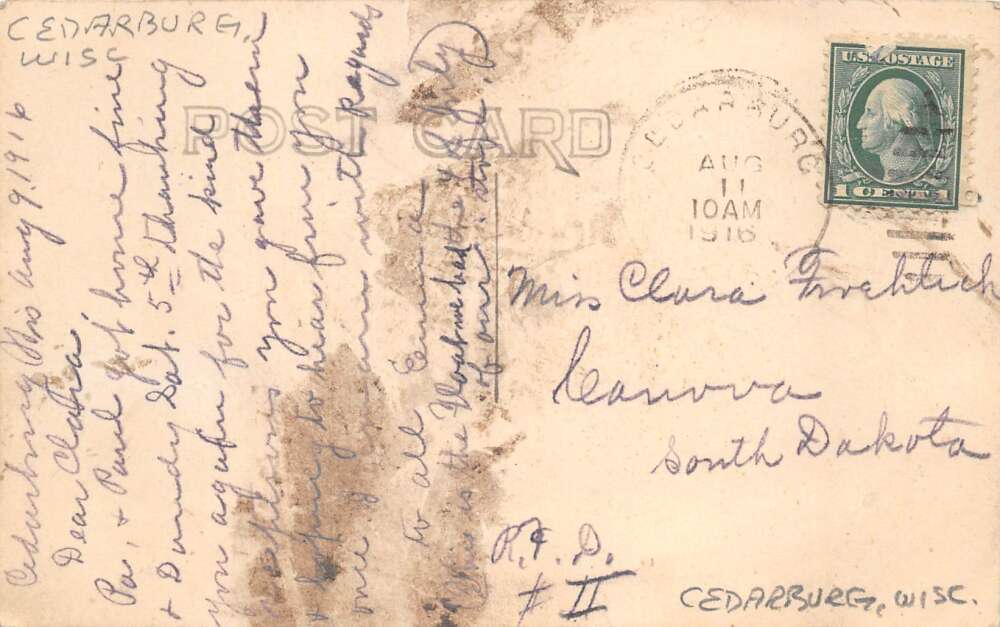 CEDARBURG,
WISC
POST CARD
U.S. POSTAGE
1 CENT 1
CEDARBURG
AUG
11
10AM
1916
Cedarburg Wis Aug 9, 1916
Dear Clara,
Pa, + Paul got home fine
+ Dandy Sat. 5th thanking
you again for the kind
you gave them
+ hoping to hear from you
with Regards
to all Emma
This is the Float we had the 4 July
of our store.)
Miss Clara
Canova
South Dakota
R.F.D.
# II
CEDARBURG, WISC.